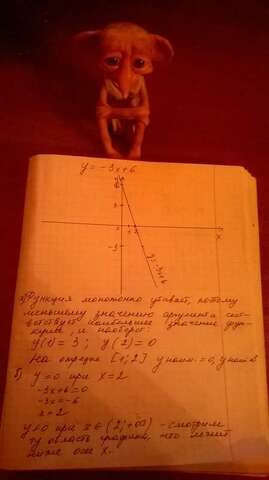 y = -3x+6
y
6
3
1 2
x
-3
y=-3x+6
а) Функция монотонно убывает, поэтому
меньшему значению аргумента соот-
ветствует наибольшее значение фун-
кции, и наоборот:
y(1) = 3 ; y(2) = 0
На отрезке [1;2] y наим. = 0, y наиб
б) y = 0 при x = 2
-3x+6=0
-3x=-6
x = 2
y<0 при x ∈ (2; +∞) - смотрим
ту область графика, что лежит
ниже оси x.